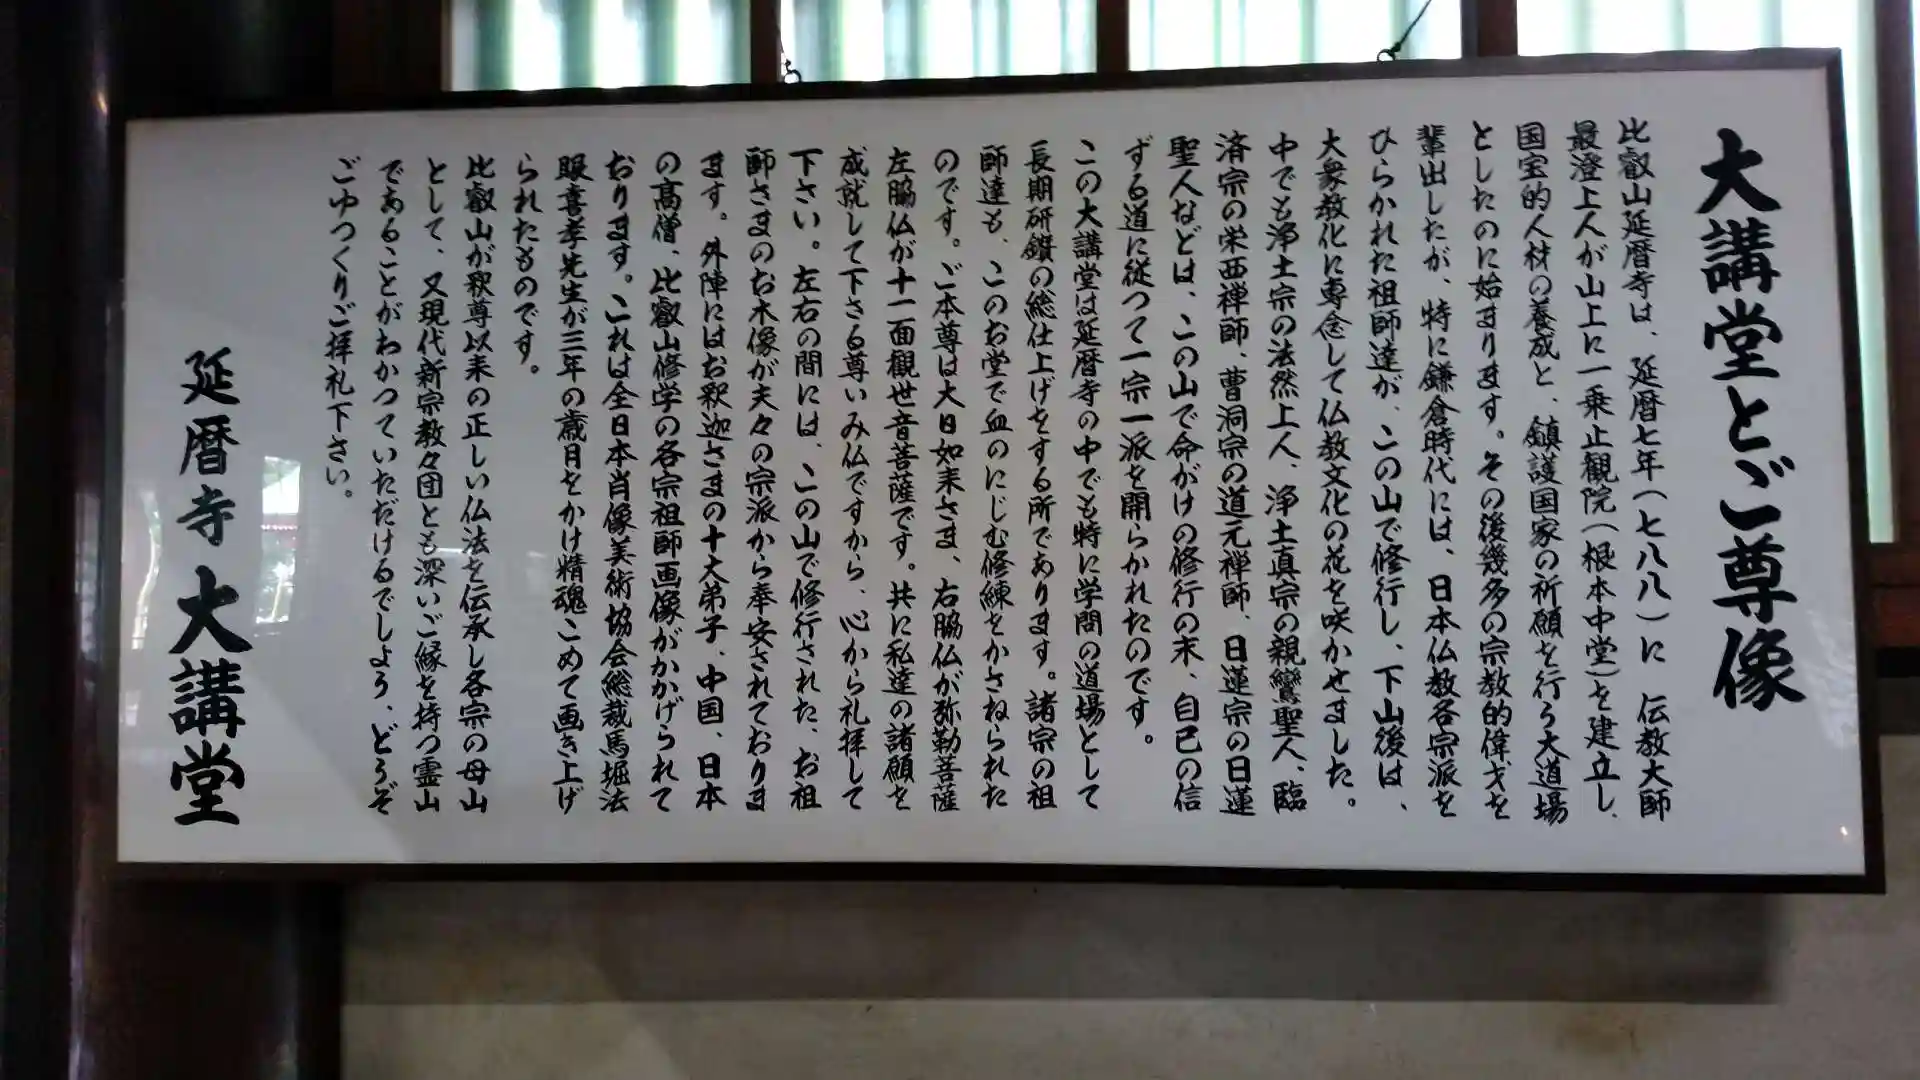 大講堂とご尊像
比叡山延暦寺は、延暦七年(七八八)に 伝教大師
最澄上人が山上に一乗止観院(根本中堂)を建立し、
国宝的人材の養成と、鎮護国家の祈願を行う大道場
としたのに始まります。その後幾多の宗教的偉才を
輩出したが、特に鎌倉時代には、日本仏教各宗派を
ひらかれた祖師達が、この山で修行し、下山後は、
大衆教化に専念して仏教文化の花を咲かせました。
中でも浄土宗の法然上人、浄土真宗の親鸞聖人、臨
済宗の栄西禅師、曹洞宗の道元禅師、日蓮宗の日蓮
聖人などは、この山で命がけの修行の末、自己の信
ずる道に従つて一宗一派を開らかれたのです。
この大講堂は延暦寺の中でも特に学問の道場として
長期研鑽の総仕上げをする所であります。諸宗の祖
師達も、このお堂で血のにじむ修練をかさねられた
のです。ご本尊は大日如来さま、右脇仏が弥勒菩薩
左脇仏が十一面観世音菩薩です。共に私達の諸願を
成就して下さる尊いみ仏ですから、心から礼拝して
下さい。左右の間には、この山で修行された、お祖
師さまのお木像が夫々の宗派から奉安されておりま
ます。外陣にはお釈迦さまの十大弟子、中国、日本
の高僧、比叡山修学の各宗祖師画像がかかげられて
おります。これは全日本肖像美術協会総裁馬堀法
眼喜孝先生が三年の歳月をかけ精魂こめて画き上げ
られたものです。
比叡山が釈尊以来の正しい仏法を伝承し各宗の母山
として、又現代新宗教々団とも深いご縁を持つ霊山
であることがわかつていただけるでしよう、どうぞ
ごゆつくりご拝礼下さい。
延暦寺 大講堂